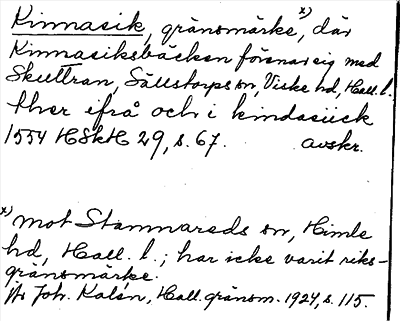 Kinnasik, gränsmärke, x) där
Kinnasiksbäcken förenar sig med
Skuttran, Sällstorps sn, Viske hd, Hall. l.
ther ifrå och i kindasiick
1554 HSkH 29, s. 67. avskr.
x) mot Stamnareds sn, Himle
hd, Hall. l.; har icke varit riks-
gränsmärke.
Joh. Kalén, Hall. gränsm. 1924, s. 115.